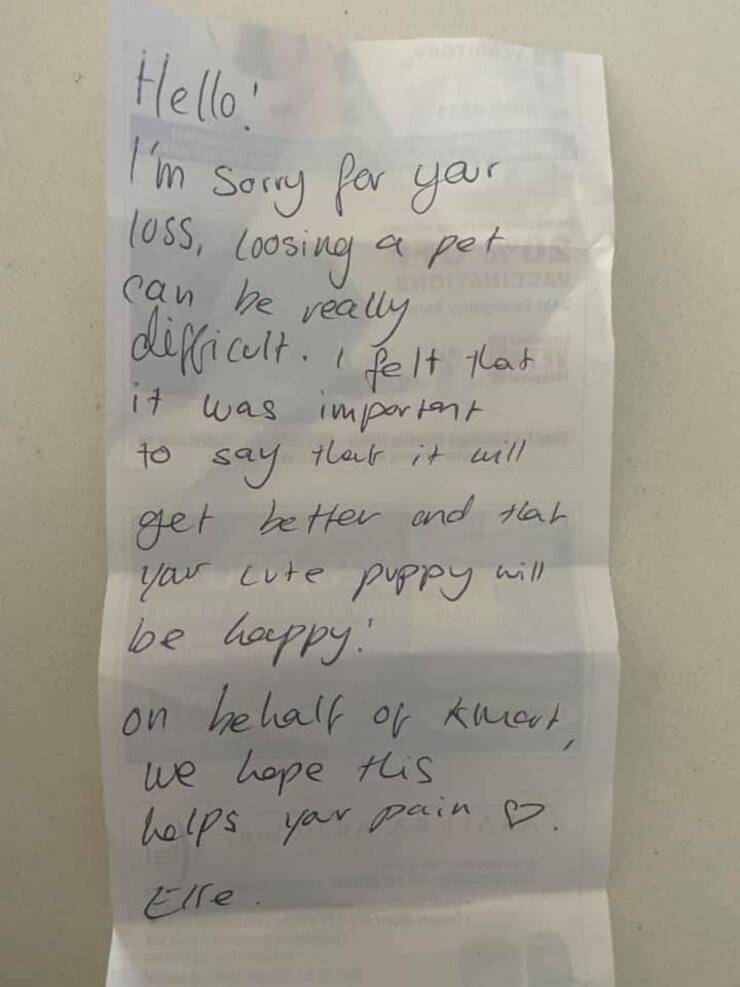 Hello!
I'm sorry for your
loss, loosing a pet
can be really
difficult. I felt that
it was important
to say that it will
get better and that
your cute puppy will
be happy!
on behalf of Kmart,
we hope this
helps your pain ♡.
Elle.